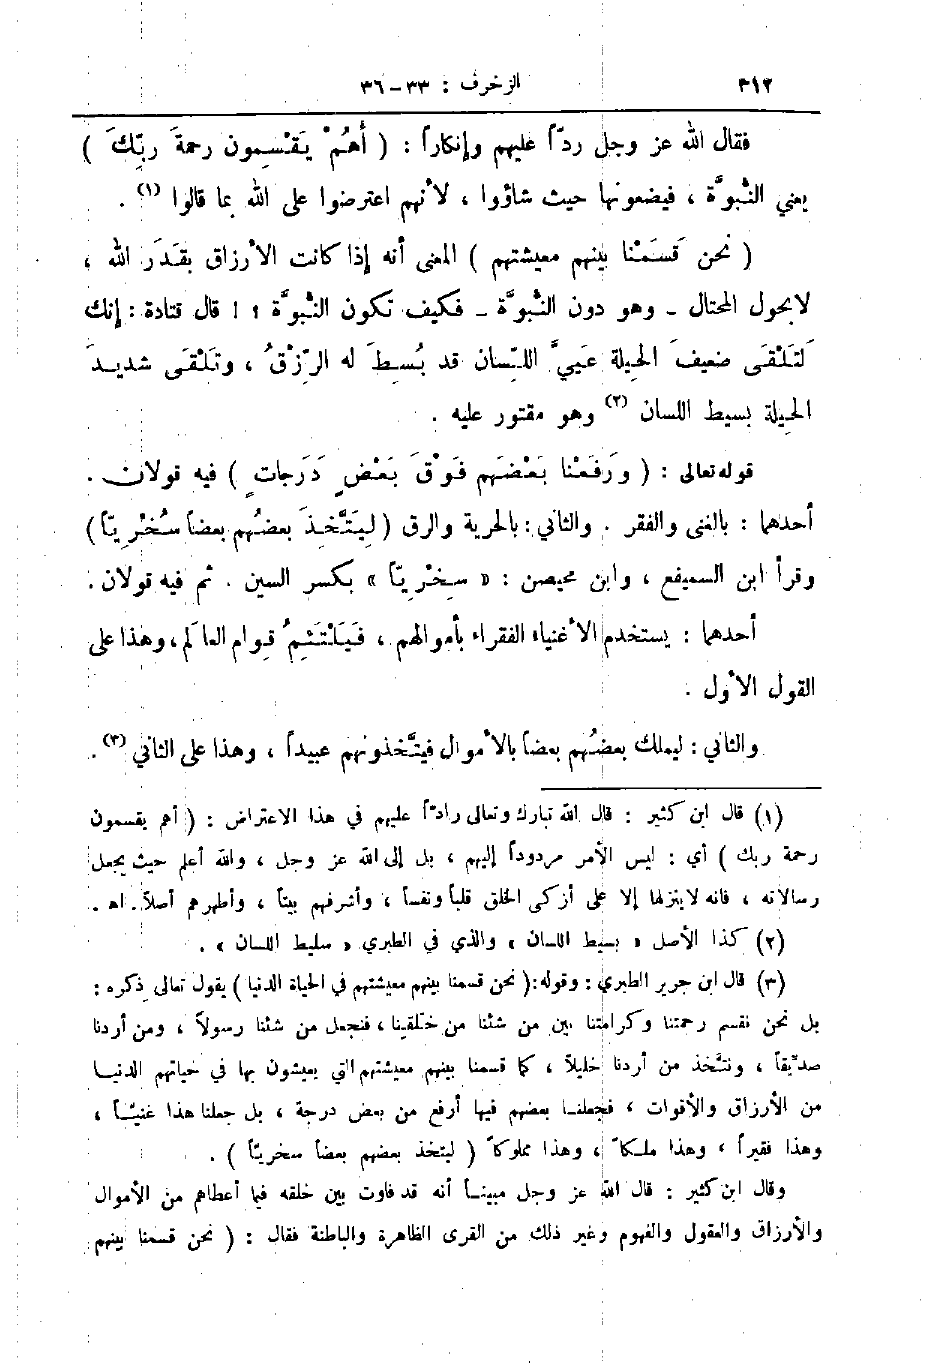 ٣١٢
الزخرف : ٣٣ – ٣٦
فقال الله عز وجل ردّاً عليهم وإنكاراً : ( أَهُمْ يَقْسِمون رحمةَ ربِّكَ )
يعني النُّبوَّة ، فيضعونها حيث شاؤوا ، لأنهم اعترضوا على الله بما قالوا (١) .
( نحن قَسَمْنا بينهم معيشتهم ) المعنى أنه إذا كانت الأرزاق بقَدَر الله ،
لا بحول المحتال – وهو دون النُّبوَّة – فكيف تكون النُّبوَّة ؟ ! قال قتادة : إنك
لَتَلْقَى ضعيفَ الحِيلة عَيِيَّ اللِّسان قد بُسِطَ له الرِّزْقُ ، وتَلْقَى شديدَ
الحِيلة بسيط اللسان (٢) وهو مقتور عليه .
قوله تعالى : ( ورَفَعْنا بَعْضَهم فَوْقَ بَعْضٍ دَرَجاتٍ ) فيه قولان .
أحدهما : بالغنى والفقر . والثاني : بالحرية والرق ( لِيَتَّخِذَ بعضُهم بعضاً سُخْرِيّاً )
وقرأ ابن السميفع ، وابن محيصن : « سِخْرِيّاً » بكسر السين . ثم فيه قولان .
أحدهما : يستخدم الأغنياء الفقراء بأموالهم ، فَيَلْتَئِمُ قِوام العالَم ، وهذا على
القول الأول .
والثاني : ليملك بعضُهم بعضاً بالأموال فيتَّخذونهم عبيداً ، وهذا على الثاني (٣) .
(١) قال ابن كثير : قال الله تبارك وتعالى رادّاً عليهم في هذا الاعتراض : ( أهم يقسمون
رحمة ربك ) أي : ليس الأمر مردوداً إليهم ، بل إلى الله عز وجل ، والله أعلم حيث يجعل
رسالاته ، فانه لا ينزلها إلا على أزكى الخلق قلباً ونفساً ، وأشرفهم بيتاً ، وأطهرهم أصلاً . اهـ .
(٢) كذا الأصل « بسيط اللسان » والذي في الطبري « سليط اللسان » .
(٣) قال ابن جرير الطبري : وقوله : ( نحن قسمنا بينهم معيشتهم في الحياة الدنيا ) يقول تعالى ذكره :
بل نحن نقسم رحمتنا وكرامتنا بين من شئنا من خلقنا ، فنجعل من شئنا رسولاً ، ومن أردنا
صدّيقاً ، ونتَّخذ من أردنا خليلاً ، كما قسمنا بينهم معيشتهم التي يعيشون بها في حياتهم الدنيا
من الأرزاق والأقوات ، فجعلنا بعضهم فيها أرفع من بعض درجة ، بل جعلنا هذا غنيّاً ،
وهذا فقيراً ، وهذا ملكاً ، وهذا مملوكاً ( ليتخذ بعضهم بعضاً سخريّاً ) .
وقال ابن كثير : قال الله عز وجل مبيناً أنه قد فاوت بين خلقه فيما أعطاهم من الأموال
والأرزاق والعقول والفهوم وغير ذلك من القرى الظاهرة والباطنة فقال : ( نحن قسمنا بينهم